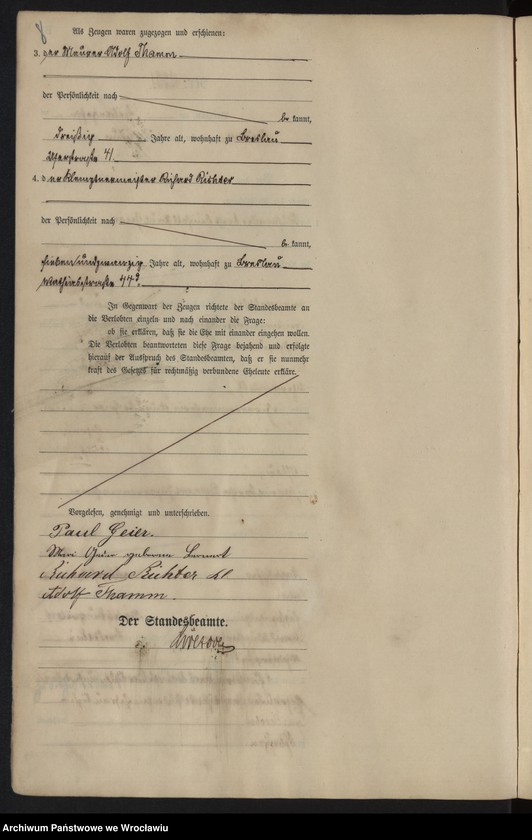 8
Als Zeugen waren zugezogen und erschienen:
3. der Maurer Adolf Thamm
der Persönlichkeit nach
be kannt,
dreißig Jahre alt, wohnhaft zu Breslau
Uferstraße 41.
4. der Klempnermeister Richard Richter
der Persönlichkeit nach
be kannt,
siebenundzwanzig Jahre alt, wohnhaft zu Breslau
Mathiasstraße 44
In Gegenwart der Zeugen richtete der Standesbeamte an
die Verlobten einzeln und nach einander die Frage:
ob sie erklären, daß sie die Ehe mit einander eingehen wollen.
Die Verlobten beantworteten diese Frage bejahend und erfolgte
hierauf der Ausspruch des Standesbeamten, daß er sie nunmehr
kraft des Gesetzes für rechtmäßig verbundene Eheleute erkläre.
Vorgelesen, genehmigt und unterschrieben.
Paul Geier.
Geier geborene
Richard Richter
Adolf Thamm.
Der Standesbeamte.
Archiwum Państwowe we Wrocławiu